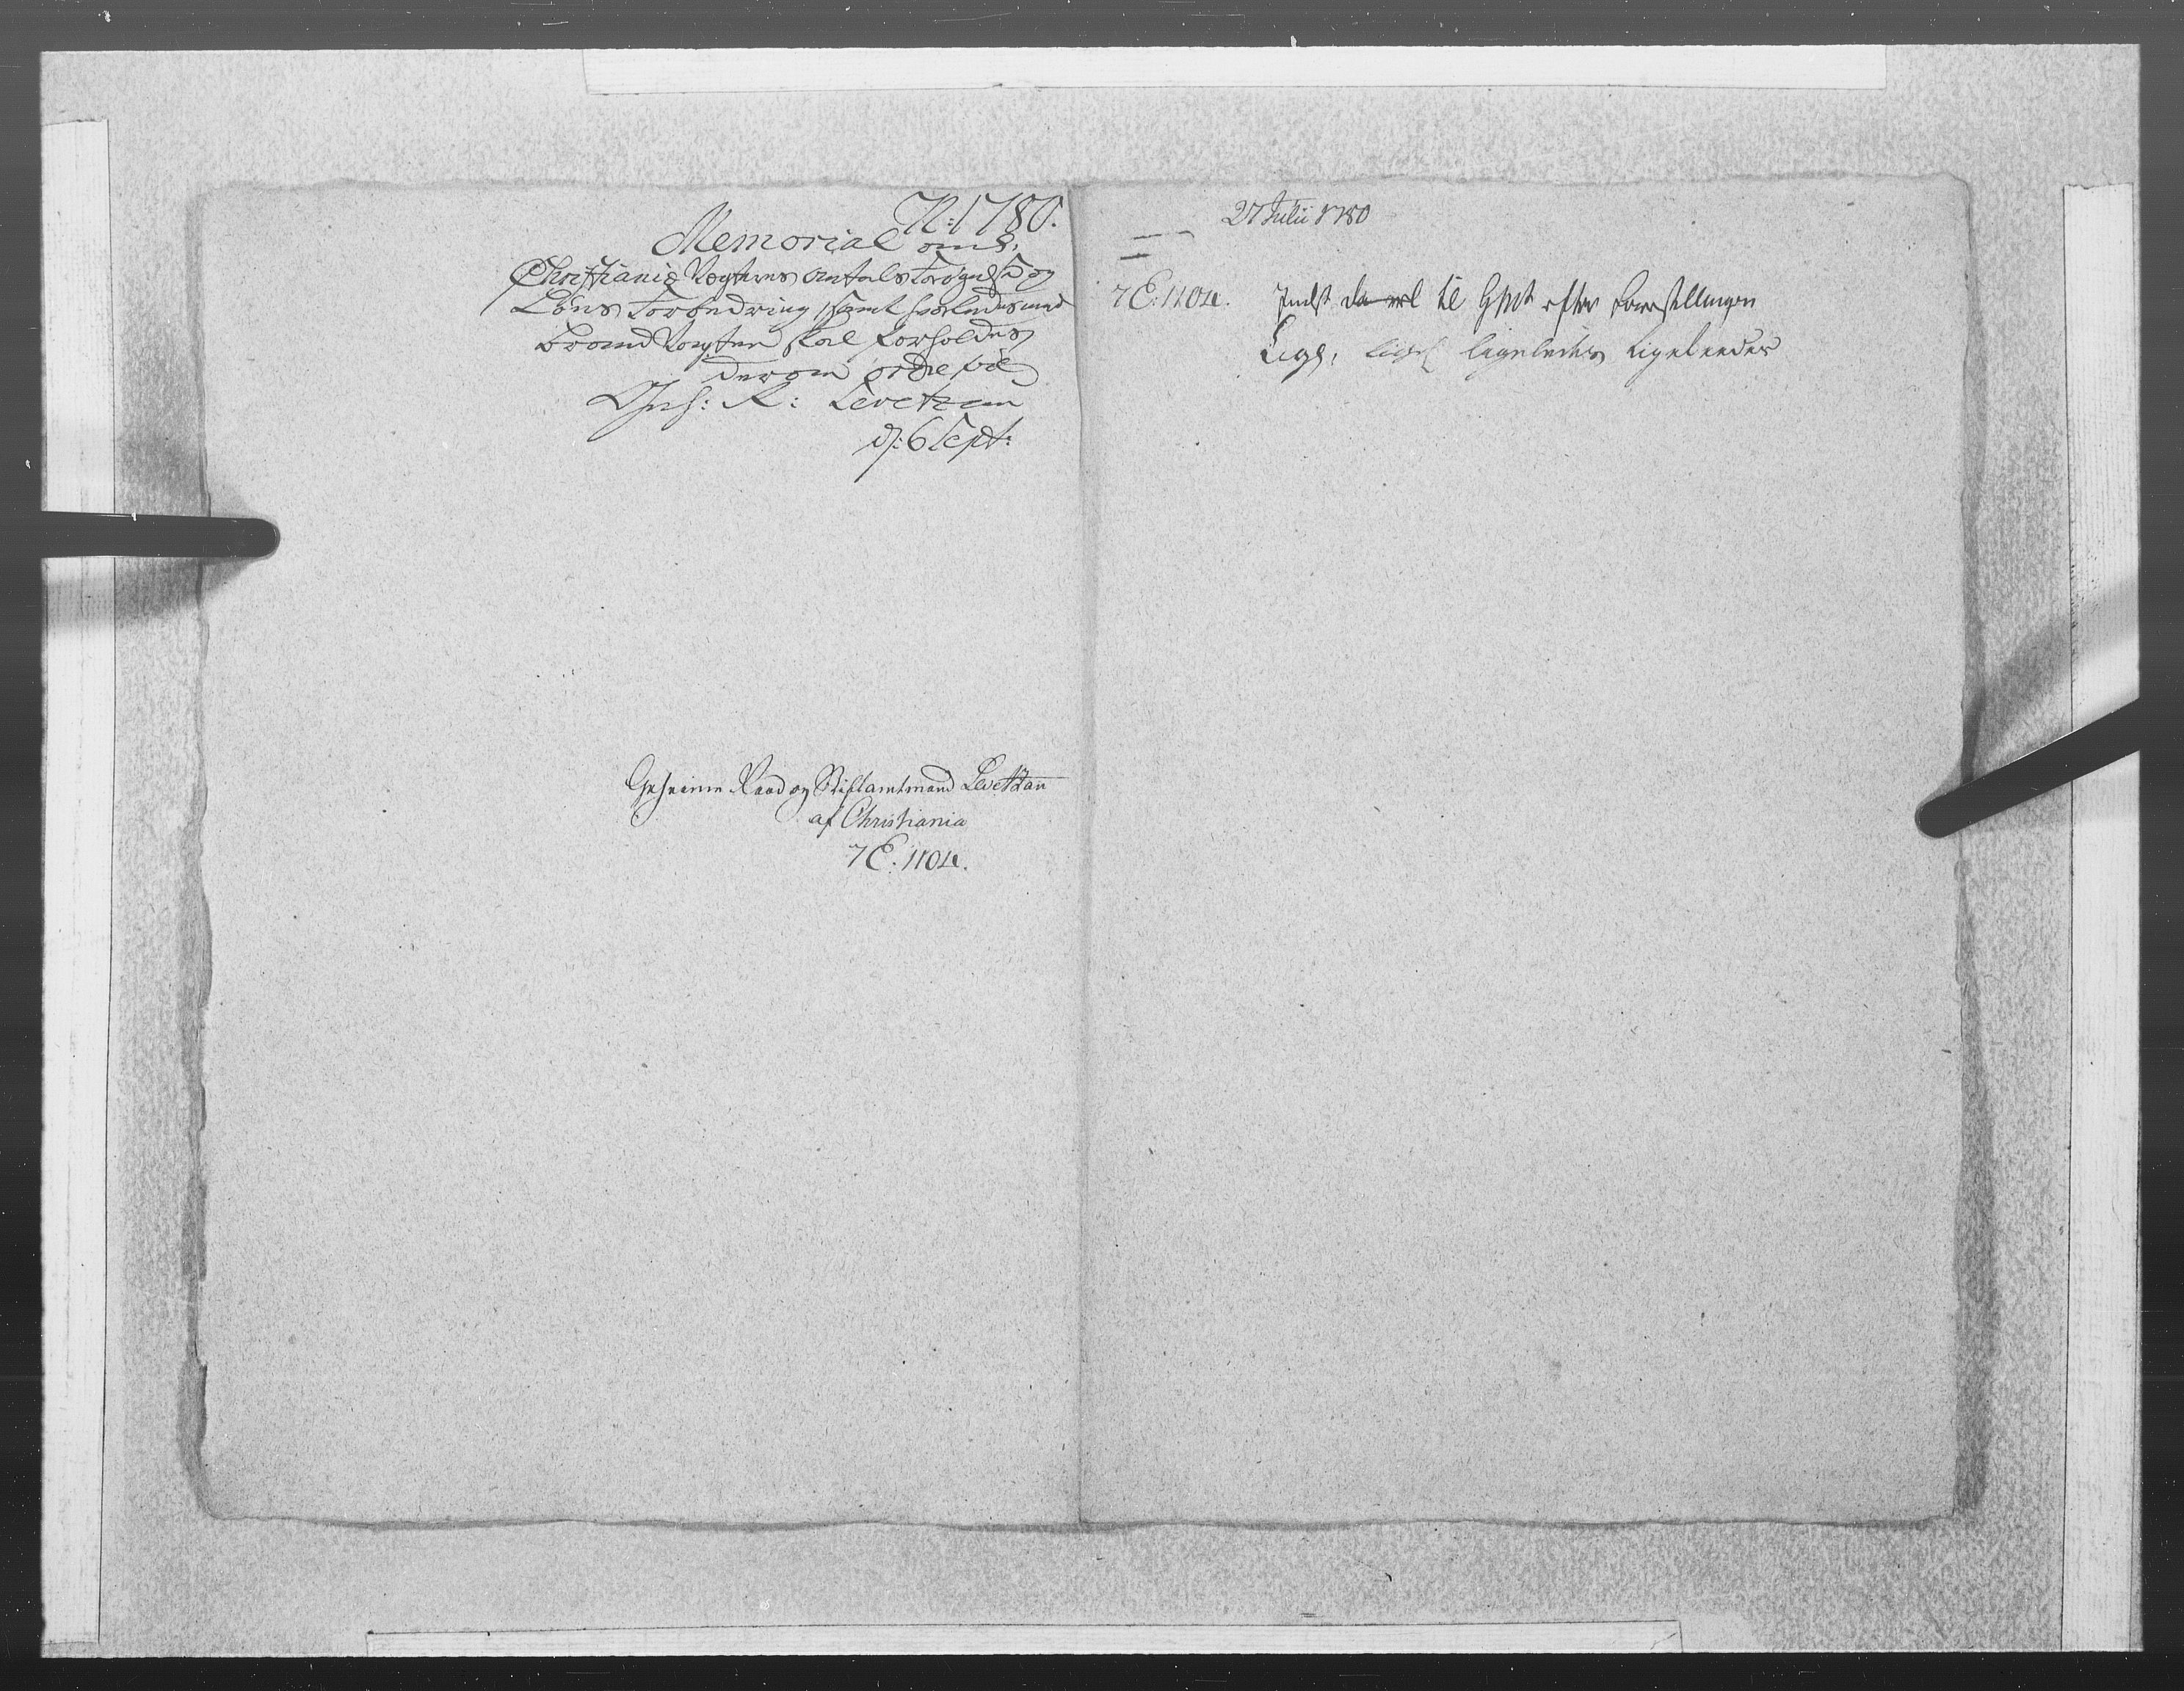 N: 1780.
Memorial om
Christiania Vægternes Antals Forøgelse og
Løns Forbedring, samt hvorledes med
Brand Vægter skal forholdes,
derom ordre vil
Geh: R: Levetzau
d: 6 Sept:
Geheime Raad og Stiftamtmand Levetzau
af Christiania
7 E: 1104.
27 Julii 1780
7 E: 1104. Indst til efter Forestillingen
Lige, ligeledes Ligeleedes